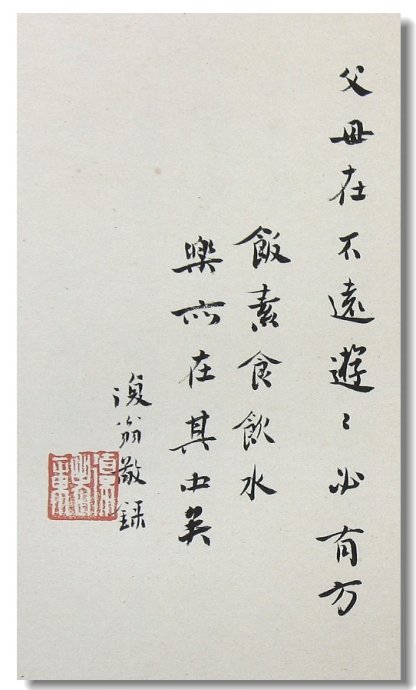 父母在不遠遊〻必有方
飯素食飲水
樂亦在其中矣
復翁敬録